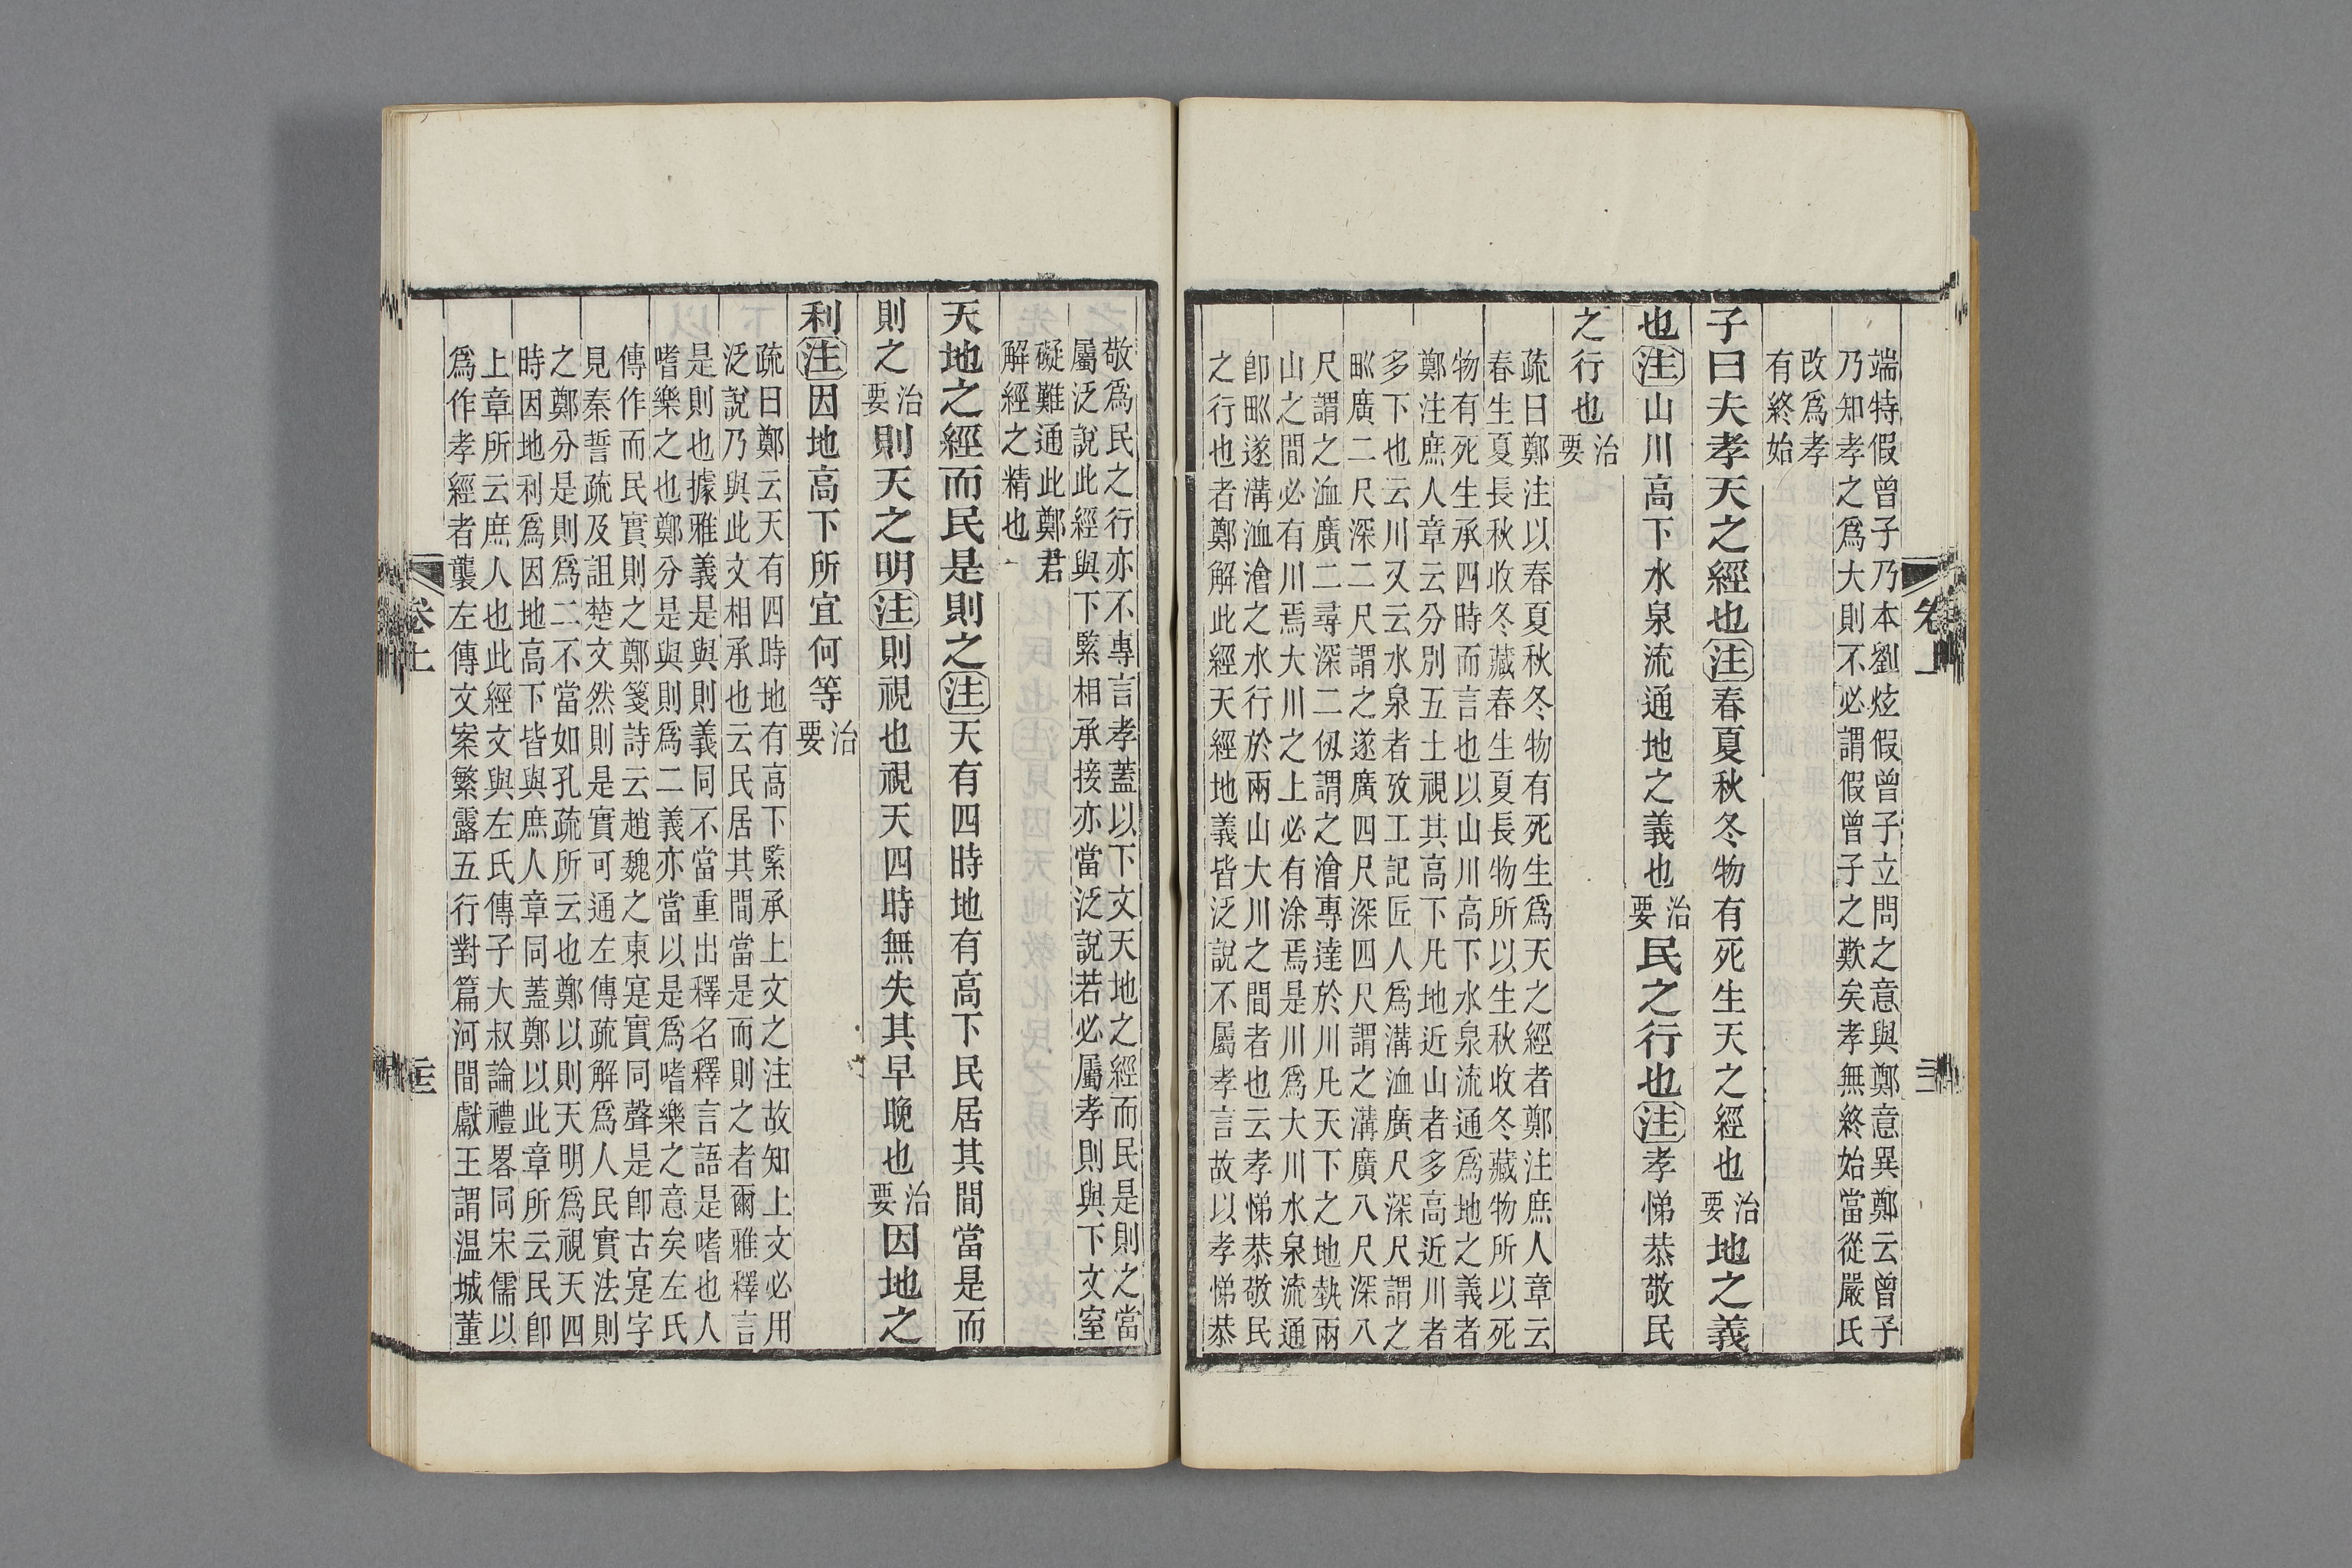 端特假曾子乃本劉炫假曾子立問之意與鄭意異鄭云曾子
乃知孝之爲大則不必謂假曾子之歎矣孝無終始當從嚴氏
改爲孝
有終始
子曰夫孝天之經也注春夏秋冬物有死生天之經也治要地之義
也注山川高下水泉流通地之義也治要民之行也注孝悌恭敬民
之行也治要
疏曰鄭注以春夏秋冬物有死生爲天之經者鄭注庶人章云
春生夏長秋收冬藏春生夏長物所以生秋收冬藏物所以死
物有死生承四時而言也以山川高下水泉流通爲地之義者
鄭注庶人章云分別五土視其高下凡地近山者多高近川者
多下也云川又云水泉者攷工記匠人爲溝洫廣尺深尺謂之
𤰕廣二尺深二尺謂之遂廣四尺深四尺謂之溝廣八尺深八
尺謂之洫廣二尋深二仭謂之澮專達於川凡天下之地埶兩
山之間必有川焉大川之上必有涂焉是川爲大川水泉流通
卽𤰕遂溝洫澮之水行於兩山大川之間者也云孝悌恭敬民
之行也者鄭解此經天經地義皆泛說不屬孝言故以孝悌恭
卷上
敬爲民之行亦不專言孝蓋以下文天地之經而民是則之當
屬泛說此經與下緊相承接亦當泛說若必屬孝則與下文窒
礙難通此鄭君
解經之精也
天地之經而民是則之注天有四時地有高下民居其間當是而
則之治要則天之明注則視也視天四時無失其早晚也治要因地之
利注因地高下所宜何等治要
疏曰鄭云天有四時地有高下緊承上文之注故知上文必用
泛說乃與此文相承也云民居其間當是而則之者爾雅釋言
是則也據雅義是與則義同不當重出釋名釋言語是嗜也人
嗜樂之也鄭分是與則爲二義亦當以是爲嗜樂之意矣左氏
傳作而民實則之鄭箋詩云趙魏之東寔實同聲是卽古寔字
見秦誓疏及詛楚文然則是實可通左傳疏解爲人民實法則
之鄭分是則爲二不當如孔疏所云也鄭以則天明爲視天四
時因地利爲因地高下皆與庶人章同蓋鄭以此章所云民卽
上章所云庶人也此經文與左氏傳子大叔論禮畧同宋儒以
爲作孝經者襲左傳文案繁露五行對篇河間獻王謂温城董
卷上